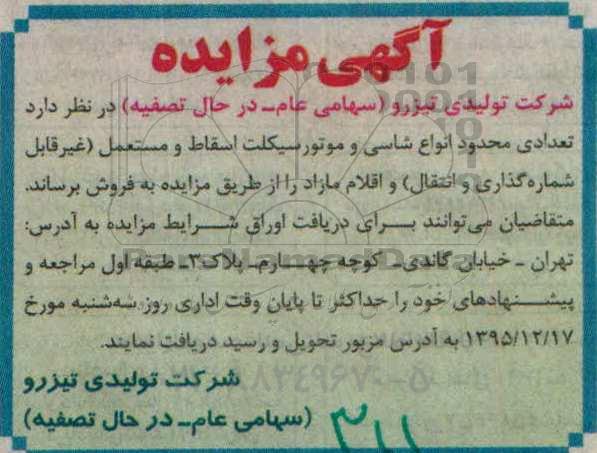 آگهی مزایده
شرکت تولیدی تیزرو (سهامی عام- در حال تصفیه) در نظر دارد
تعدادی محدود انواع شاسی و موتورسیکلت اسقاط و مستعمل (غیرقابل
شماره‌گذاری و انتقال) و اقلام مازاد را از طریق مزایده به فروش برساند.
متقاضیان می‌توانند برای دریافت اوراق شرایط مزایده به آدرس:
تهران - خیابان گاندی- کوچه چهارم- پلاک ۳- طبقه اول مراجعه و
پیشنهادهای خود را حداکثر تا پایان وقت اداری روز سه‌شنبه مورخ
۱۳۹۵/۱۲/۱۷ به آدرس مزبور تحویل و رسید دریافت نمایند.
شرکت تولیدی تیزرو
(سهامی عام- در حال تصفیه)